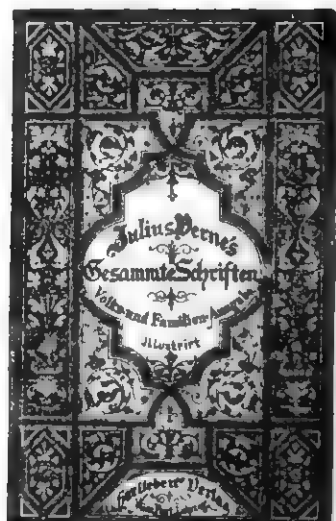 Julius Verne's
Gesammte Schriften
Volks und Familien-Ausgabe
Illustrirt
Hartleben's Verlag